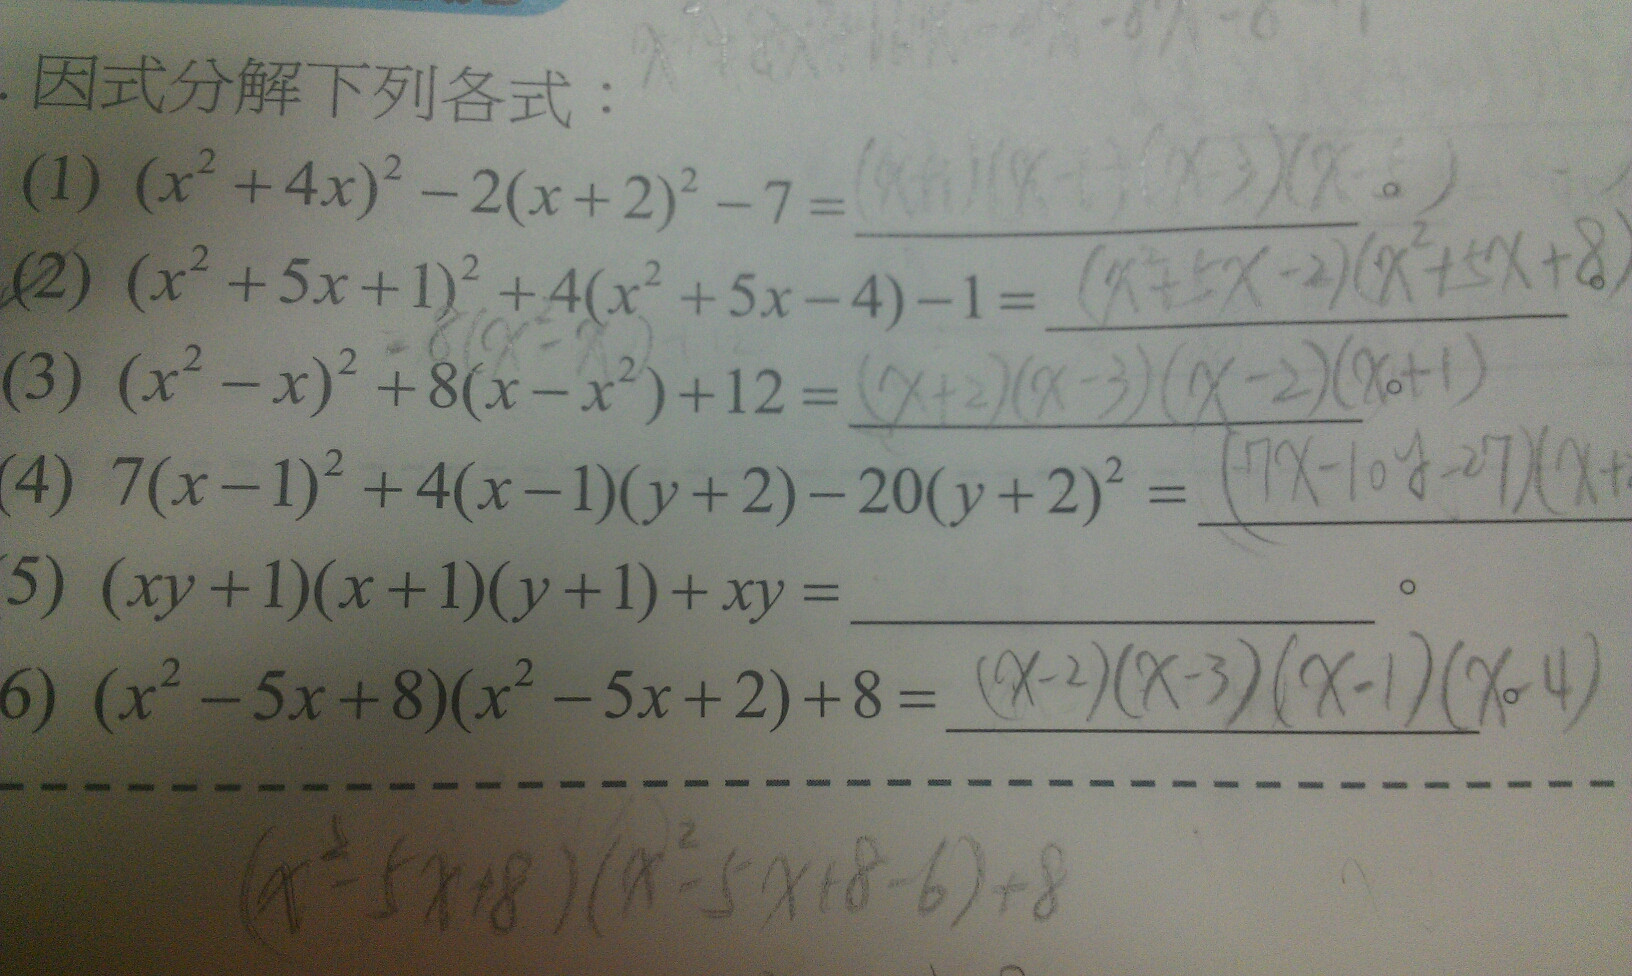 . 因式分解下列各式：
(1) (x² + 4x)² − 2(x + 2)² − 7 = 。
(2) (x² + 5x + 1)² + 4(x² + 5x − 4) − 1 = (x²+5x−2)(x²+5x+8) 。
-8(x²-x)
(3) (x² − x)² + 8(x − x²) + 12 = (x+2)(x−3)(x−2)(x+1) 。
(4) 7(x − 1)² + 4(x − 1)(y + 2) − 20(y + 2)² = (7x−10y−27)(x+
(5) (xy + 1)(x + 1)(y + 1) + xy = 。
6) (x² − 5x + 8)(x² − 5x + 2) + 8 = (x−2)(x−3)(x−1)(x−4) 。
(x²-5x+8)(x²-5x+8-6)+8